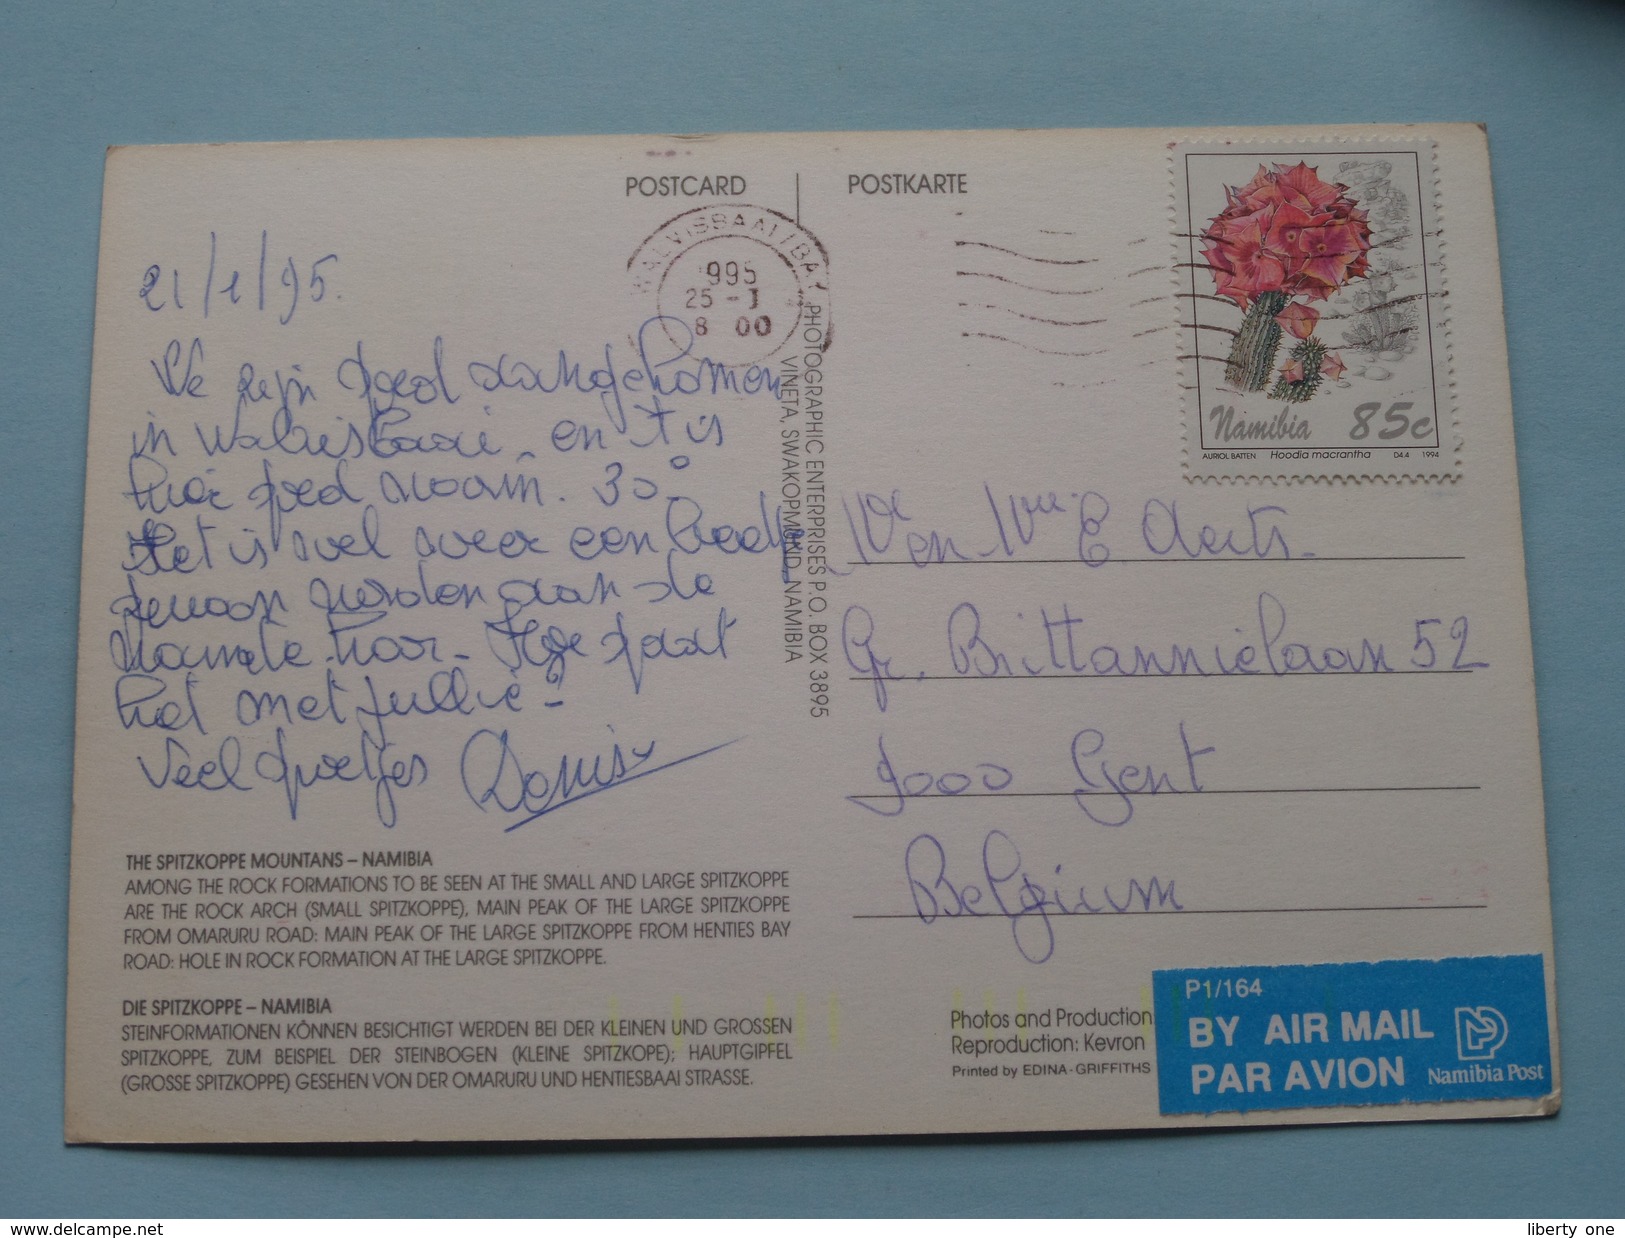 POSTCARD
POSTKARTE
WALVISBAAI/BAY
995
25 -1
8 00
Namibia 85c
AURIOL BATTEN Hoodia macrantha D4.4 1994
21/1/95.
We zijn goed aangekomen
in Walvisbaai en 't is
hier goed warm. 30°
Het is wel weer een beetje
gewoon worden aan de
warmte hoor. Hoe gaat
het met jullie?
Veel groetjes Denis
PHOTOGRAPHIC ENTERPRISES P.O. BOX 3895
VINETA, SWAKOPMUND, NAMIBIA
en E. Aerts.
Gr. Brittannielaan 52
9000 Gent
Belgium
THE SPITZKOPPE MOUNTANS – NAMIBIA
AMONG THE ROCK FORMATIONS TO BE SEEN AT THE SMALL AND LARGE SPITZKOPPE
ARE THE ROCK ARCH (SMALL SPITZKOPPE), MAIN PEAK OF THE LARGE SPITZKOPPE
FROM OMARURU ROAD: MAIN PEAK OF THE LARGE SPITZKOPPE FROM HENTIES BAY
ROAD: HOLE IN ROCK FORMATION AT THE LARGE SPITZKOPPE.
DIE SPITZKOPPE – NAMIBIA
STEINFORMATIONEN KÖNNEN BESICHTIGT WERDEN BEI DER KLEINEN UND GROSSEN
SPITZKOPPE, ZUM BEISPIEL DER STEINBOGEN (KLEINE SPITZKOPE); HAUPTGIPFEL
(GROSSE SPITZKOPPE) GESEHEN VON DER OMARURU UND HENTIESBAAI STRASSE.
Photos and Production
Reproduction: Kevron
Printed by EDINA-GRIFFITHS
P1/164
BY AIR MAIL
PAR AVION Namibia Post
www.delcampe.net
liberty one